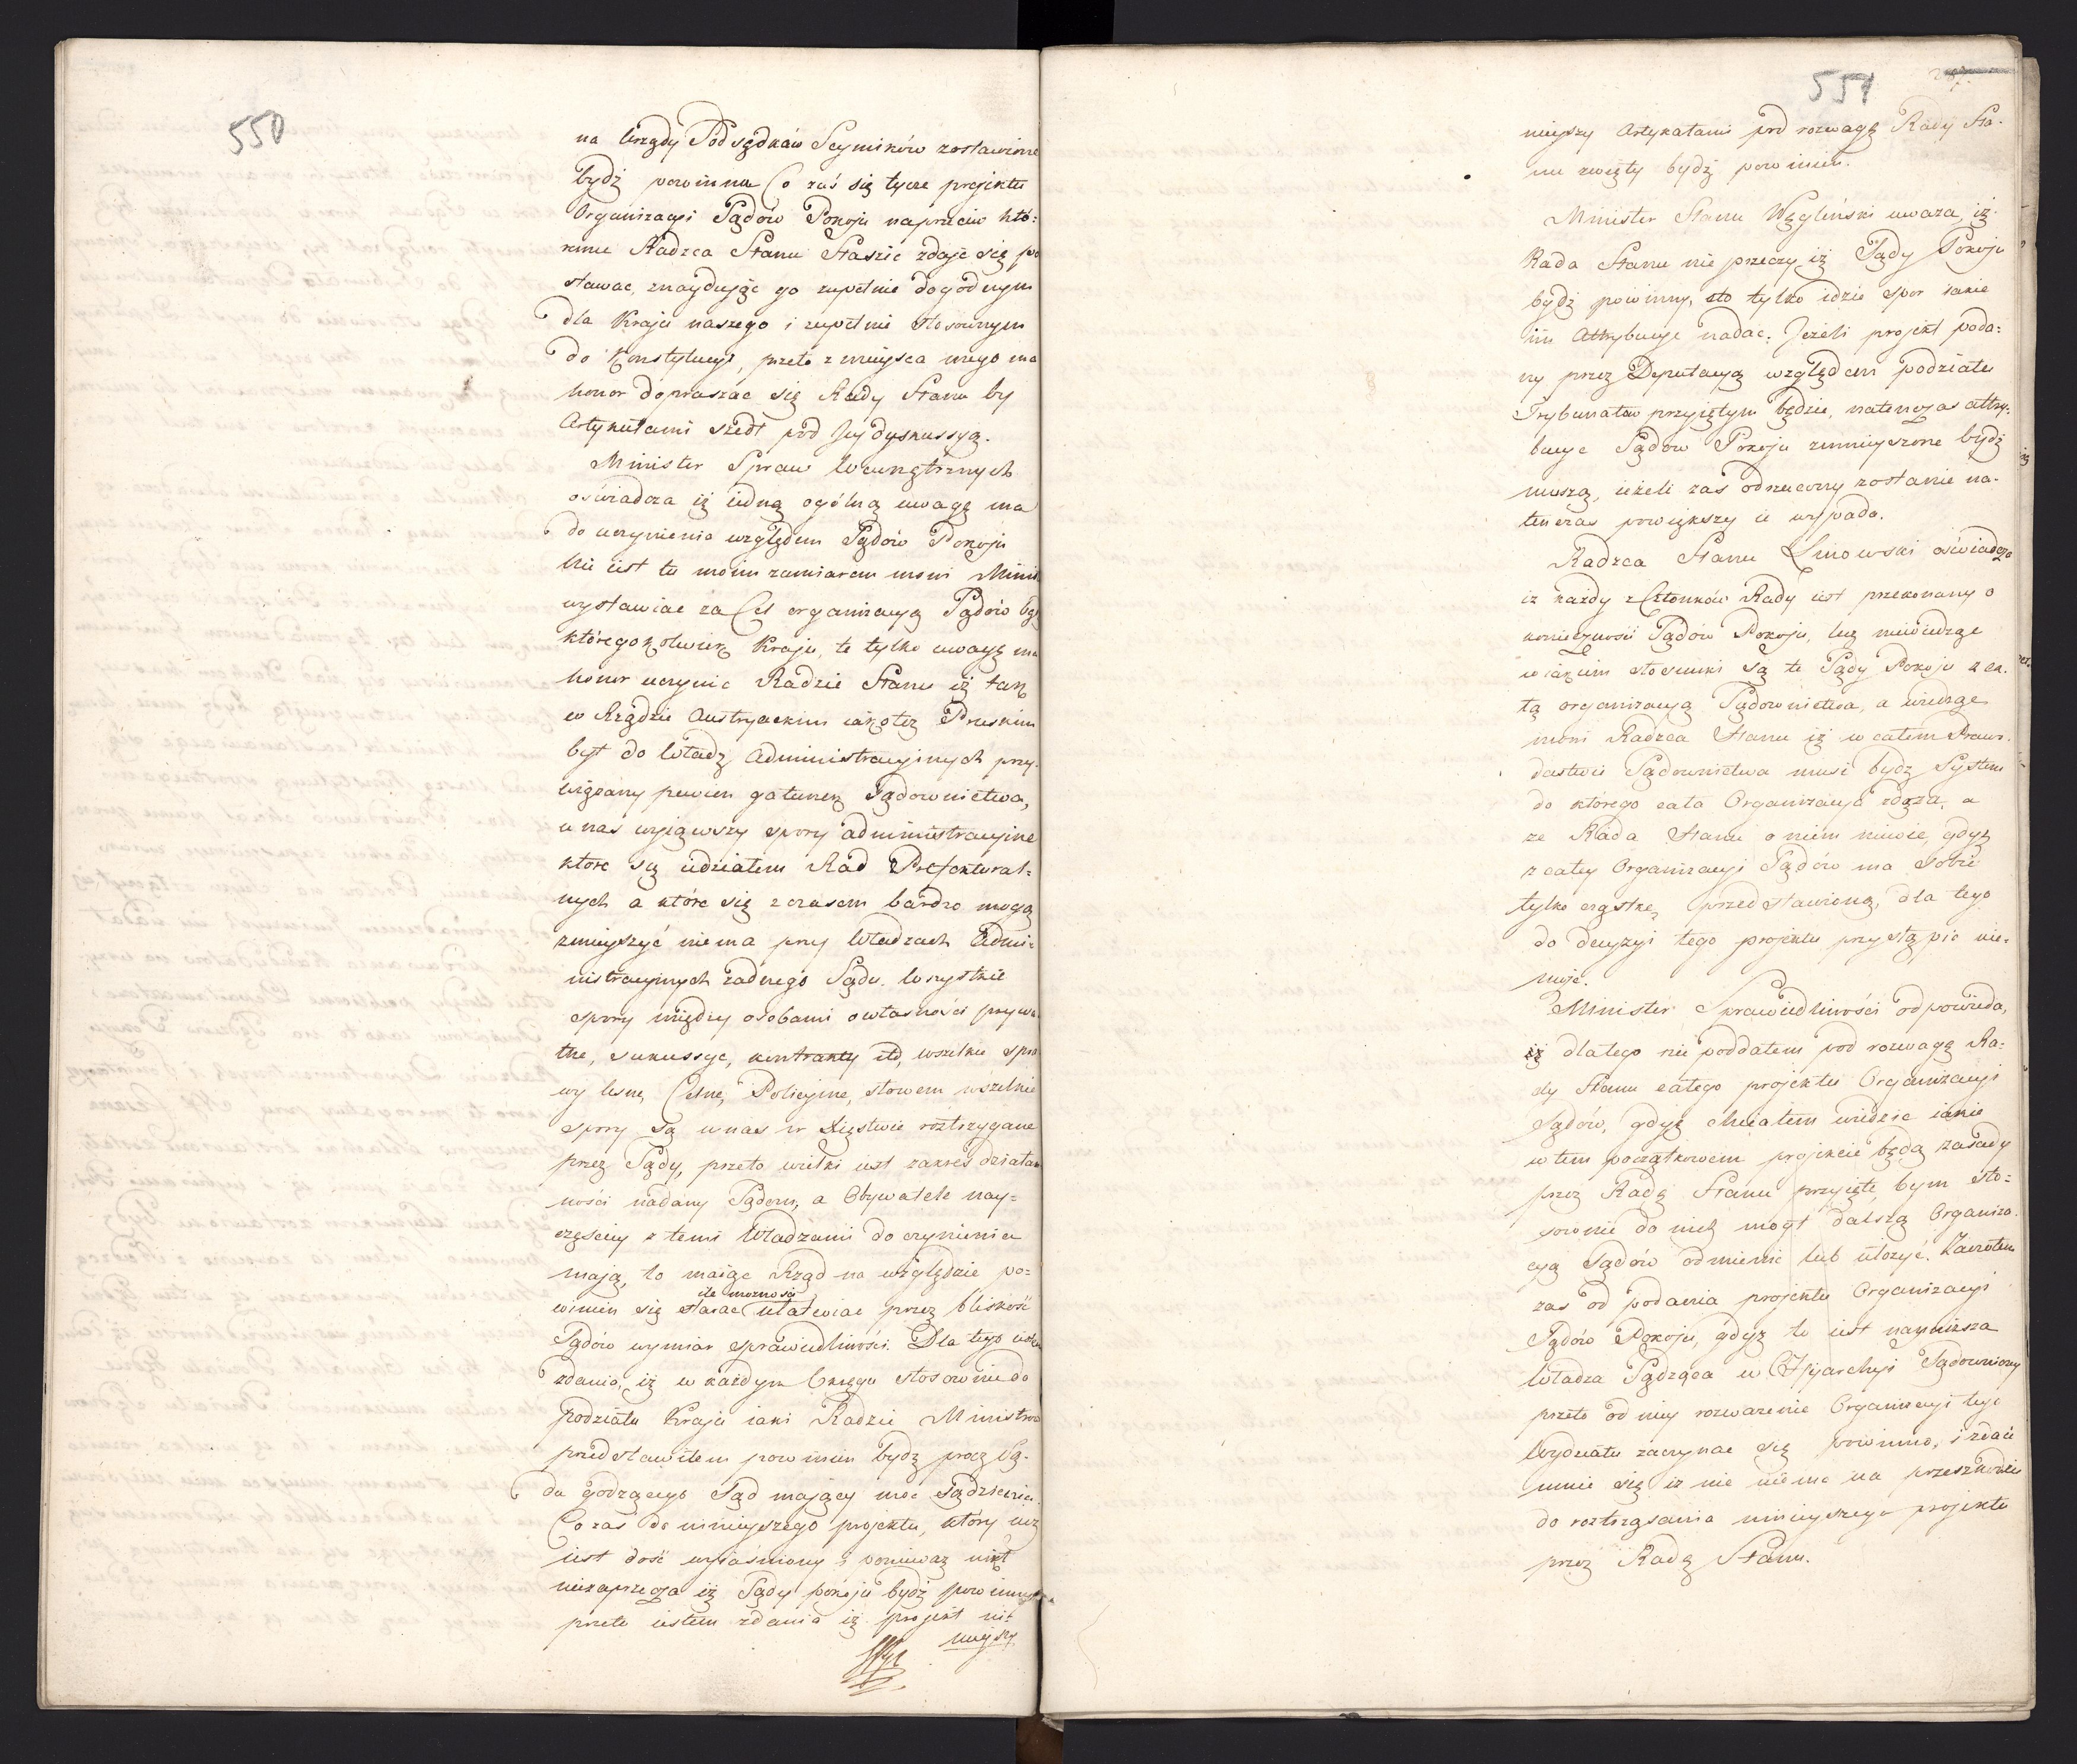 550
na Urzędy Podsędków Seymików zostawione
bydź powinna Co zaś się tycze projektu
Organizacyi Sądów Pokoju naprzeciw któ=
remu Radzca Stanu Staszic zdaje się po
stawac, znayduiąc go zupełnie dogodnym
dla Kraju naszego i zupełnie stosownym
do Konstytucyi, przeto z mieysca swego ma
honor dopraszac się Rady Stanu by
Artykułami szedł pod Jey dyskussyą.
Minister Spraw Wewnętrznych
oświadcza iż iedną ogólną uwagę ma
do uczynienia względem Sądów Pokoju
Nie iest tu moim zamiarem mowi Minis
wystawiac za Cel organizacyą Sądów
któregokolwiek Kraju, te tylko uwagę ma
honor uczynic Radzie Stanu iż tak
w Rządzie Austryackim iakoteż Pruskim
był do Władz Administracyinych przy=
wiązany pewien gatunek Sądownictwa,
u nas wyiąwszy spory administracyine
które są udziałem Rad Prefektural=
nych a które się z czasem bardzo mogą
zmnieyszyć niema przy Władzach Admi=
nistracyinych żadnego Sądu. Wszystkie
spory między osobami o własność prywa
tne, sukcessye, kontrakty etc, wszelkie spra
wy lesne, Celne, Policyine, słowem wszelkie
spory są u nas w Xięstwie roztrzygane
przez Sądy, przeto wielki iest zakres działan
ności nadany Sądom, a Obywatele nay=
częściey z temi Władzami do czynienia
maią, to maiąc Rząd na względzie po=
ile możnosci
winien się starac ułatwiac przez bliskość
Sądów wymiar sprawiedliwości. Dla tego iestem
zdania, iż w każdym Okręgu stosownie do
podziału Kraju iaki Radzie Ministrów
przedstawiłem powinien bydz procz Są=
du godzącego Sąd maiący moc Sądzenia.
Co zaś do ninieyszego projektu, który iuż
iest dość wyiaśniony i ponieważ nikt
niezaprzecza iż Sądy pokoju bydź powinny
przeto iestem zdania iż projekt ni=
nieyszy
551
nieyszy Artykułami pod rozwagę Rady Sta=
nu wzięty bydź powinien.
Minister Stanu Węgliński uwaza, iż
Rada Stanu nie przeczy iż Sądy Pokoju
bydź powinny, oto tylko idzie spor iakie
im Attrybucye nadac. Jeżeli projekt poda=
ny przez Deputacyą względem podziału
Trybunałów przyiętym będzie, natenczas attry=
bucye Sądów Pokoju zmnieyszone bydź
muszą, ieżeli zaś odrzucony zostanie na=
tenczas powiększyć ie wypada.
Radzca Stanu Linowski oświadcza
iż każdy z Członków Rady iest przekonany o
konieczności Sądów Pokoju, lecz niewiedząc
w iakim stosunku są te Sądy Pokoju z ca=
łą organizacyą Sądownictwa, a wiedząc
mowi Radzca Stanu iż w całem Prawo=
dastwie Sądownictwa musi bydz System
do którego cała Organizacya zdąża, a
ze Rada Stanu o niem niewie, gdyż
z całey Organizacyi Sądów ma sobie
tylko cząstkę przedstawioną, dla tego
do decyzyi tego projektu przystąpic nie=
może.
Minister Sprawiedliwości odpowiada,
iż dlatego nie poddałem pod rozwagę Ra=
dy Stanu całego projektu Organizacyi
Sądów, gdyż chciałem wiedzic iakie
w tem początkowem projekcie będą zasady
przez Radę Stanu przyięte, bym sto=
sownie do nich mogł dalszą Organiza=
cyą Sądów odmienić lub ułożyć. Zacząłem
zaś od podania projektu Organizacyi
Sądów Pokoju, gdyż to iest nayniższa
Władza Sądząca w Hyjarchyi Sądowniczey
przeto od niey rozważenie Organizacyi tego
Wydziału zaczynac się powinno, i zdaie
mnie się iż nic niema na przeszkodzie
do roztrząsania ninieyszego projektu
przez Radę Stanu.